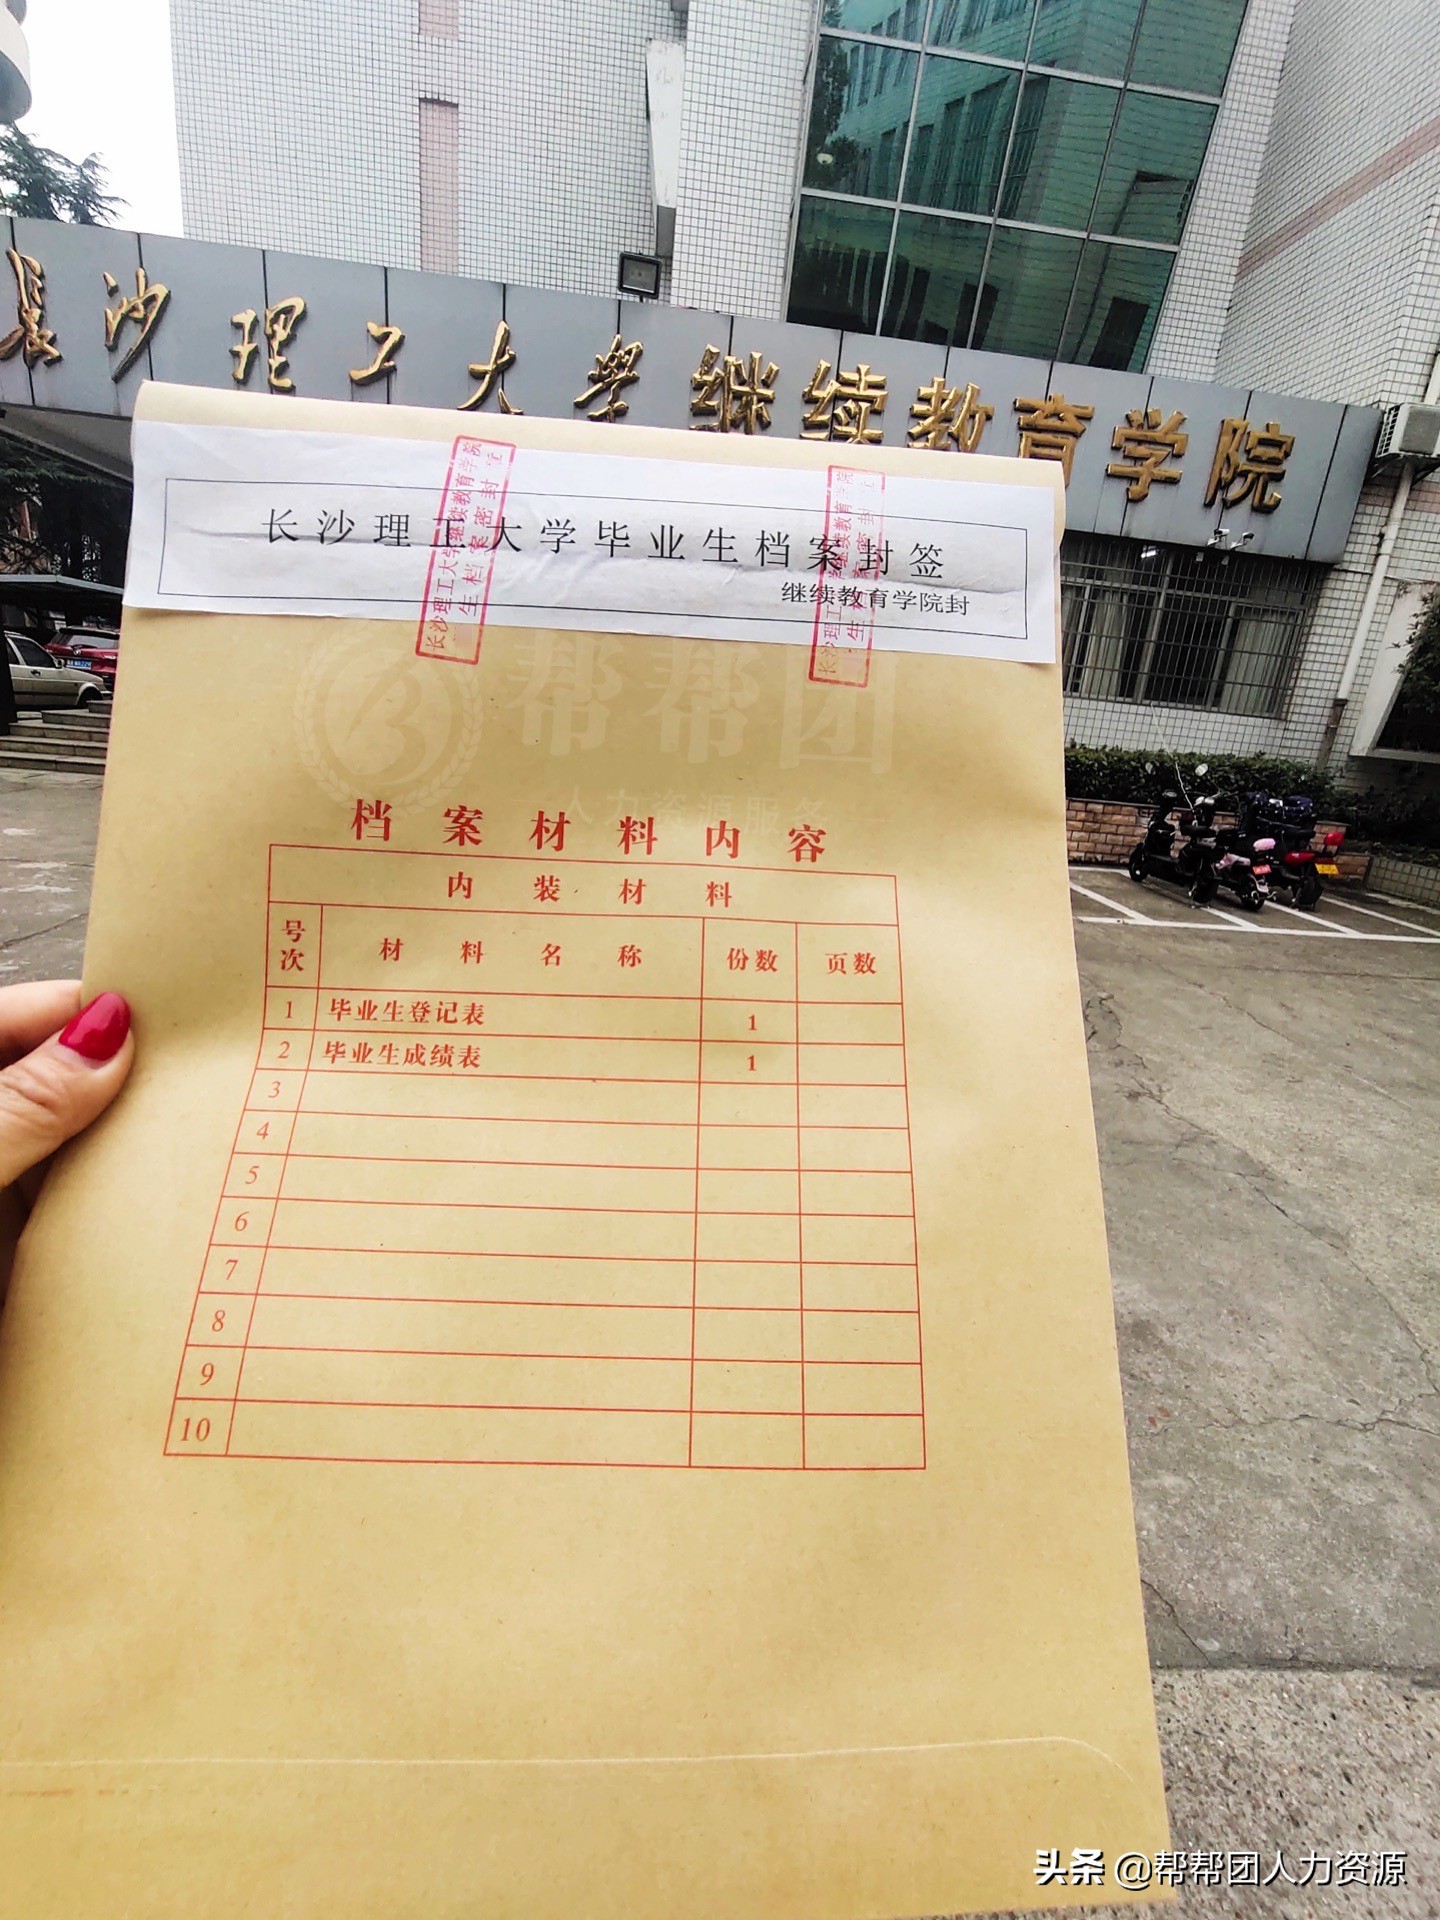 長沙理工大学继续教育学院
长沙理工大学毕业生档案封签
继续教育学院封
长沙理工大学继续教育学院
生档案密封章
帮帮团
人力资源服
档案材料内容
内装材料
号次 材料名称 份数 页数
1 毕业生登记表 1
2 毕业生成绩表 1
3
4
5
6
7
8
9
10
头条 @帮帮团人力资源